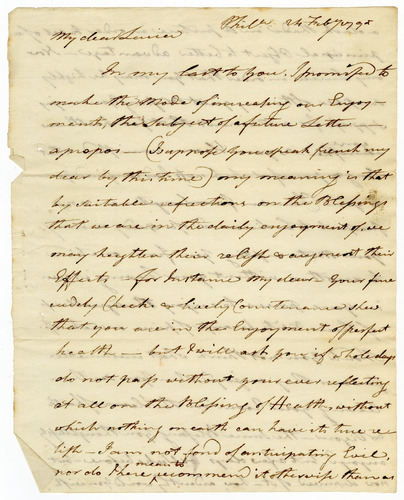 Phila. 24 Feby 1795
My dear
In my last to you, I promised to
make the Mode of increasing our Enjoy-
ments, the subject of a future Letter
apropos — (I suppose you speak french my
dear by this time) my meaning is that
by suitable reflections on the Blessings
that we are in the daily enjoyment of, we
may heighten their relish & augment their
Effects — for Instance my dear your fine
ruddy Cheek & lively Countenance shew
that you are in the Enjoyment of perfect
health — but I will ask you if whole days
do not pass without your ever reflecting
at all on the Blessing of Health, without
which nothing on earth can have its true re-
lish — I am not fond of anticipating Evil,
nor do I here mean to recommend it otherwise than as